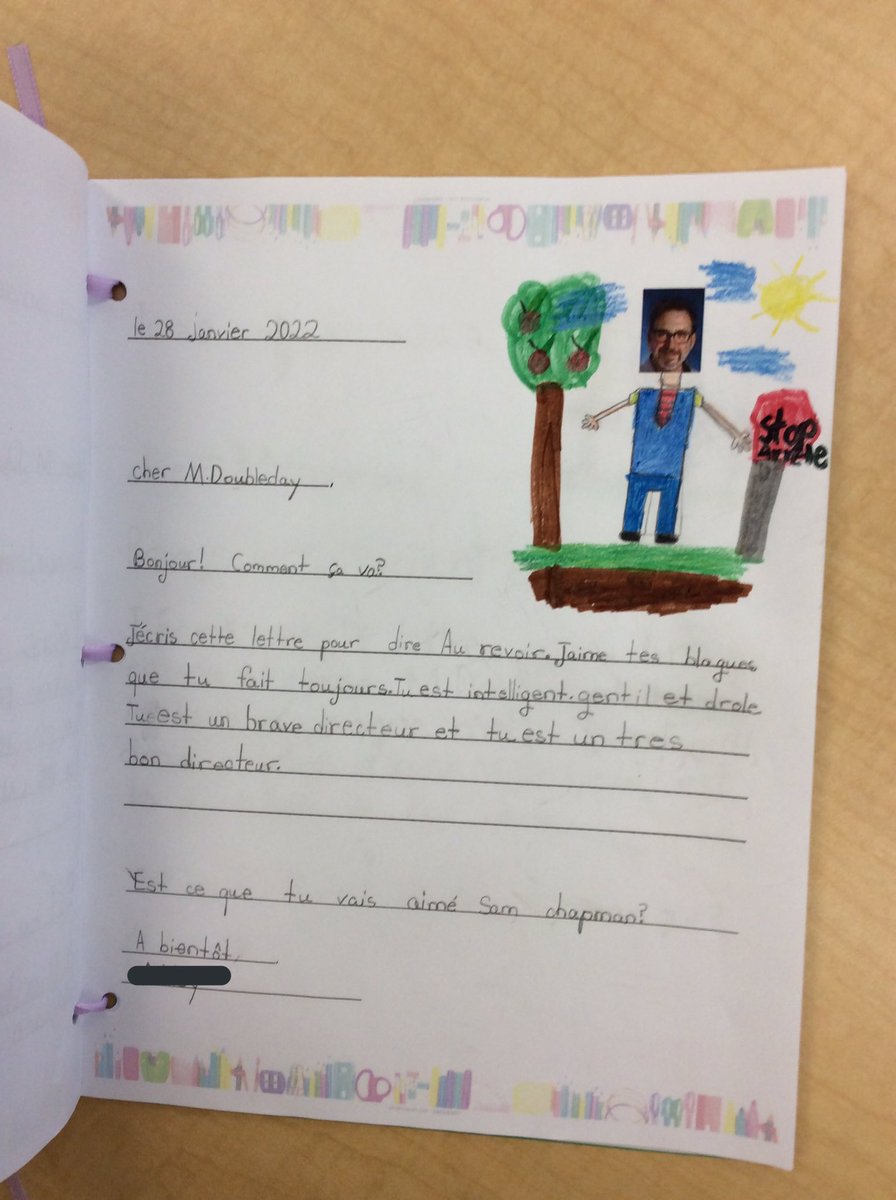 le 28 janvier 2022
cher M.Doubleday,
Stop
Bonjour! Comment ça va?
J'écris cette lettre pour dire Au revoir. J'aime tes blagues
que tu fait toujours. Tu est intelligent. gentil et drole
Tu est un brave directeur et tu est un tres
bon directeur.
Est ce que tu vais aimé Sam chapman?
A bientôt,